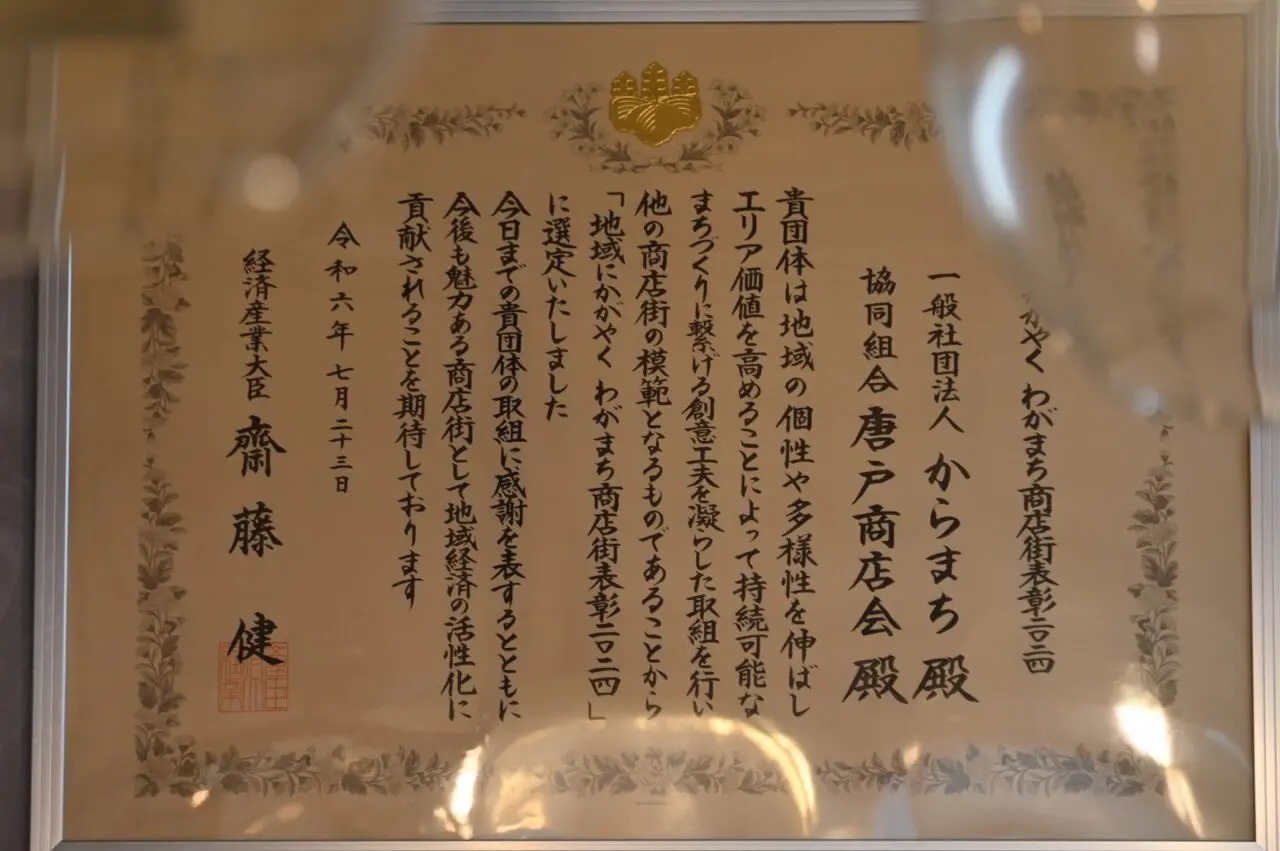 がやく わがまち商店街表彰二〇二四
一般社団法人 からまち 殿
協同組合 唐戸商店会 殿
貴団体は地域の個性や多様性を伸ばし
エリア価値を高めることによって持続可能な
まちづくりに繋げる創意工夫を凝らした取組を行い
他の商店街の模範となるものであることから
「地域にかがやく わがまち商店街表彰二〇二四」
に選定いたしました
今日までの貴団体の取組に感謝を表するとともに
今後も魅力ある商店街として地域経済の活性化に
貢献されることを期待しております
令和六年 七月二十三日
経済産業大臣 齋藤 健